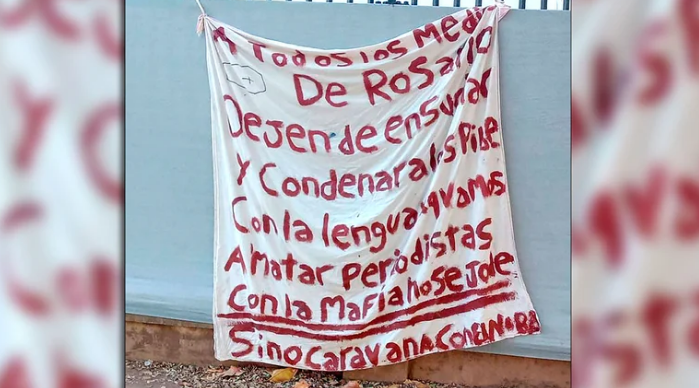 A Todos los Medi
De Rosario
Dejen de ensuciar
Y Condenar a los Pibe
Con la lengua
vamos
A Matar periodistas
Con la Mafia no se Jode
Sino caravana